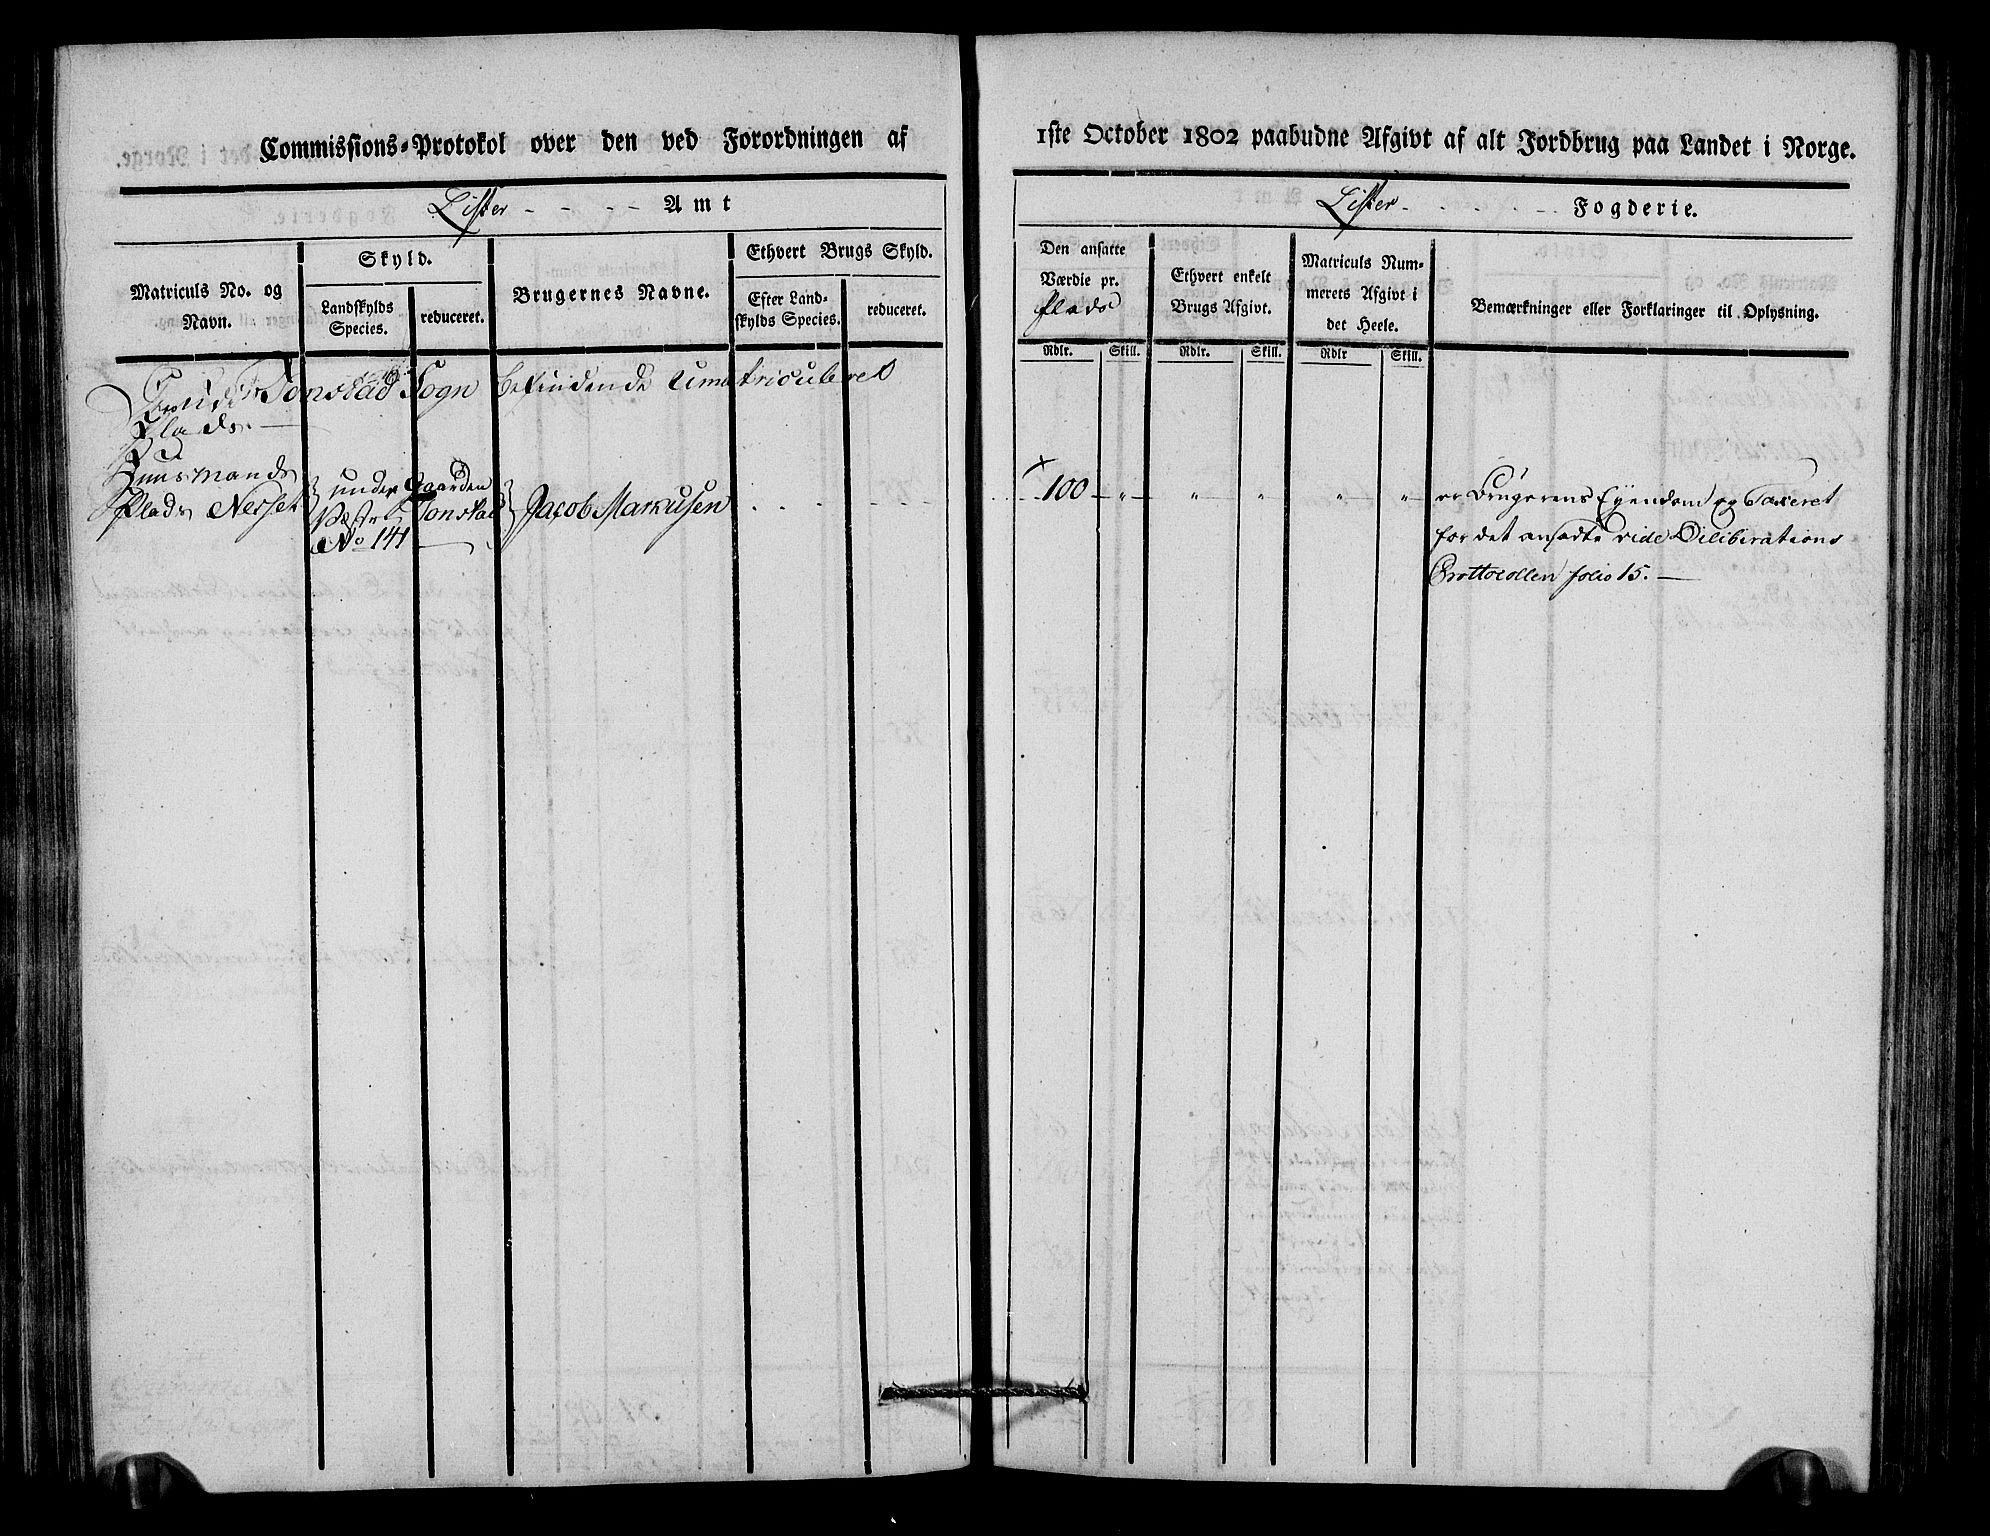 Commissions-Protokol over den ved Forordningen af
1ste October 1802 paabudne Afgivt af alt Jordbrug paa Landet i Norge.
Lister - - - - Amt
Lister - - - - Fogderie.
Matriculs No. og
Navn.
Skyld.
Landskylds
Species.
reduceret.
Brugernes Navne.
Ethvert Brugs Skyld.
Efter Land-
skylds Species.
reduceret.
Den ansatte
Værdie pr.
Plads
Rdlr. Skill.
Ethvert enkelt
Brugs Afgivt.
Rdlr. Skill.
Matriculs Num-
merets Afgivt i
det Heele.
Rdlr Skill.
Bemærkninger eller Forklaringer til Oplysning.
Tonstad Sogn befindende Umatriculeret
Plads. —
Huusmands
Plads Nesset
under Gaarden
Tonstad
No 141
Jacob Markusen
100 " " " " "
er Brugerens Eyendom og Taxeret
for det ansadte vide Diliberations
Prottocollen folio 15. —